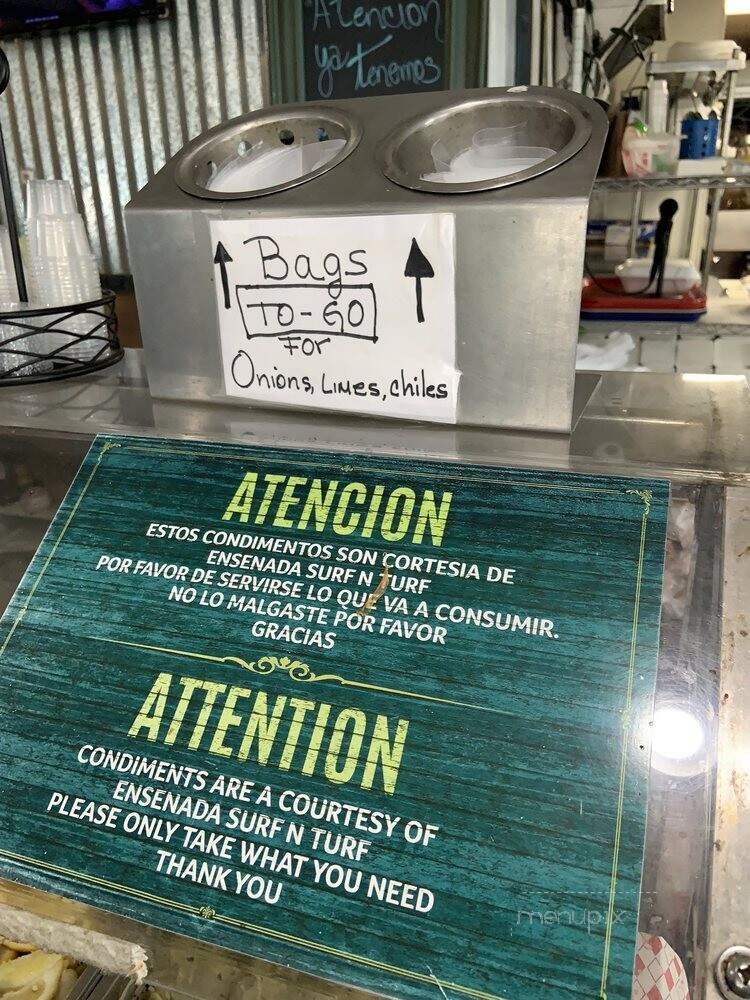 Atencion
ya tenemos
Bags
TO-GO
For
Onions, Limes, chiles
ATENCION
ESTOS CONDIMENTOS SON CORTESIA DE
ENSENADA SURF N TURF
POR FAVOR DE SERVIRSE LO QUE VA A CONSUMIR.
NO LO MALGASTE POR FAVOR
GRACIAS
ATTENTION
CONDIMENTS ARE A COURTESY OF
ENSENADA SURF N TURF
PLEASE ONLY TAKE WHAT YOU NEED
THANK YOU
menupix